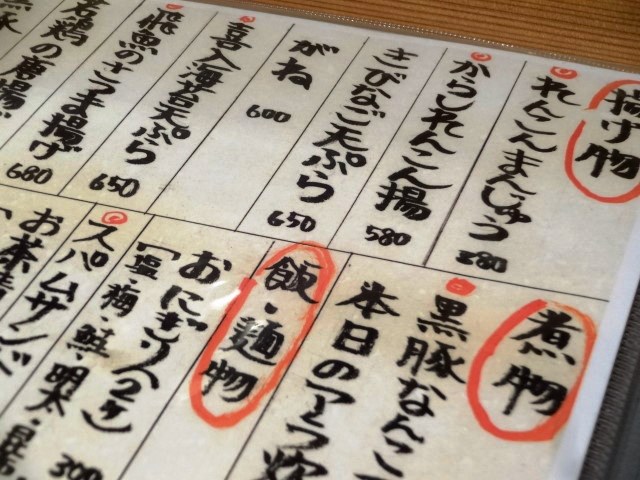 揚げ物
れんこんまんじゅう
380
からしれんこん揚
580
きびなご天ぷら
650
がね
600
喜入海苔天ぷら
650
飛魚のさつま揚げ
680
若鶏の唐揚げ
黒豚
煮物
黒豚なんこ
本日のアラ炊
飯・麺物
おにぎり(2ケ)
[塩・梅・鮭・明太・昆
300
スパムサンド
お茶漬